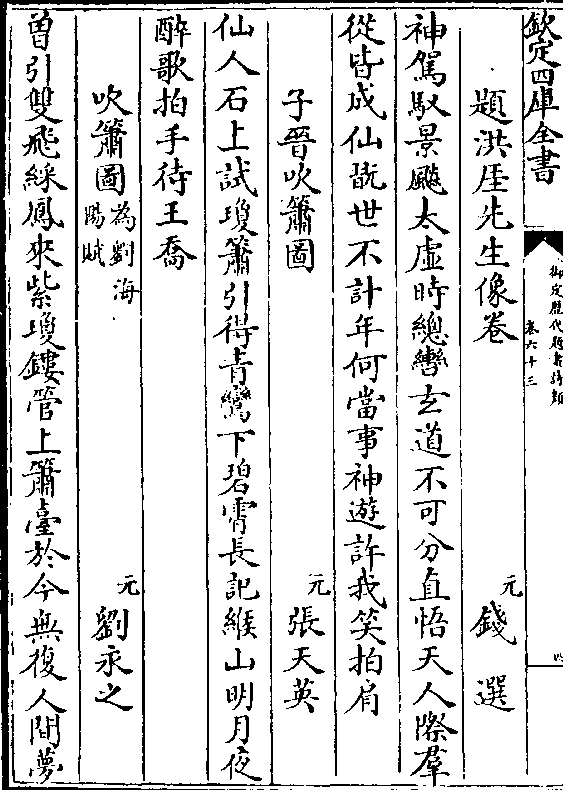 欽定四庫全書
御定歷代題畫詩類
卷六十三
四
題洪厓先生像卷
元 錢選
神駕馭景飈太虛時總轡玄道不可分直悟天人際羣
從皆成仙飢世不計年何當事神遊許我笑拍肩
子晉吹簫圖
元 張天英
仙人石上試瓊簫引得青鸞下碧霄長記緱山明月夜
醉歌拍手待王喬
吹簫圖
為劉海
陽賦
元 劉永之
曽引雙飛綵鳳來紫瓊鏤管上簫臺於今無復人間夢